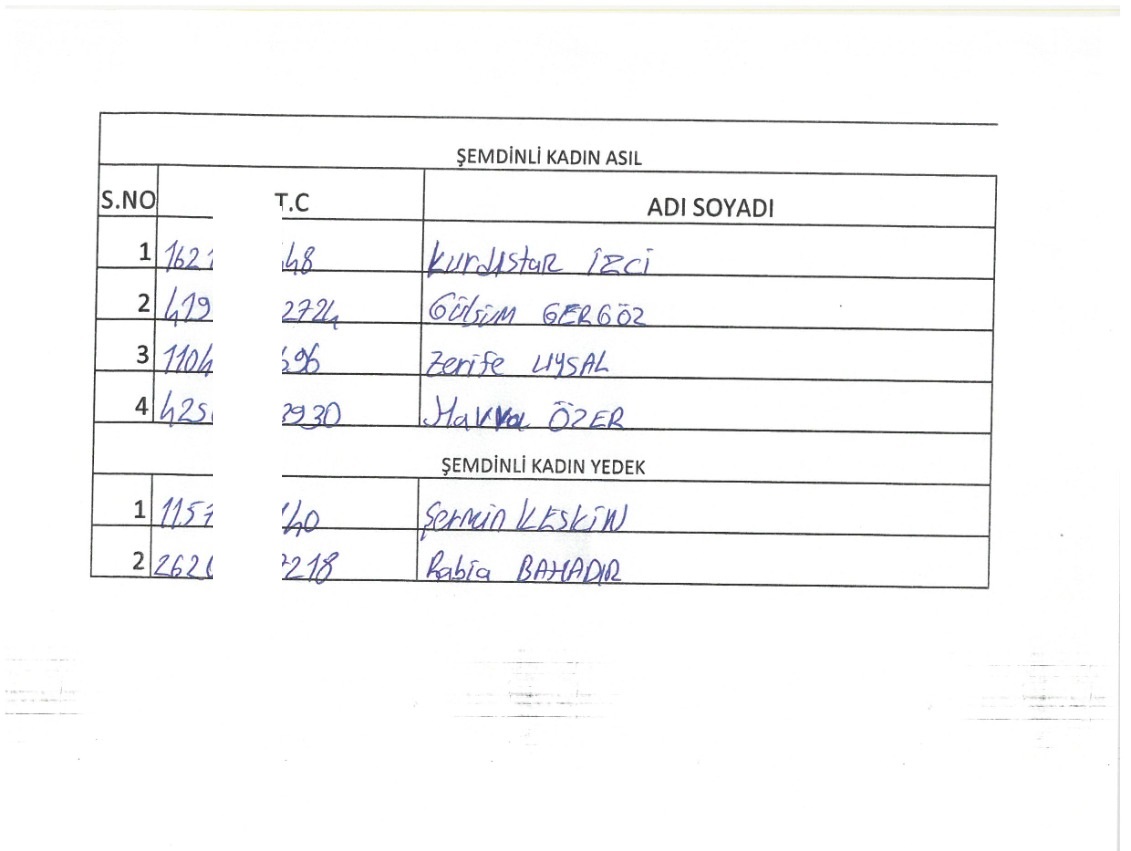 ŞEMDİNLİ KADIN ASIL
S.NO T.C ADI SOYADI
1 162 48 Kurdıstar İZCİ
2 419 2724 Gülsüm GERGÖZ
3 1104 96 Zerife UYSAL
4 425 2930 Havva ÖZER
ŞEMDİNLİ KADIN YEDEK
1 1157 40 Şermin KESKİN
2 262 218 Rabia BAHADIR